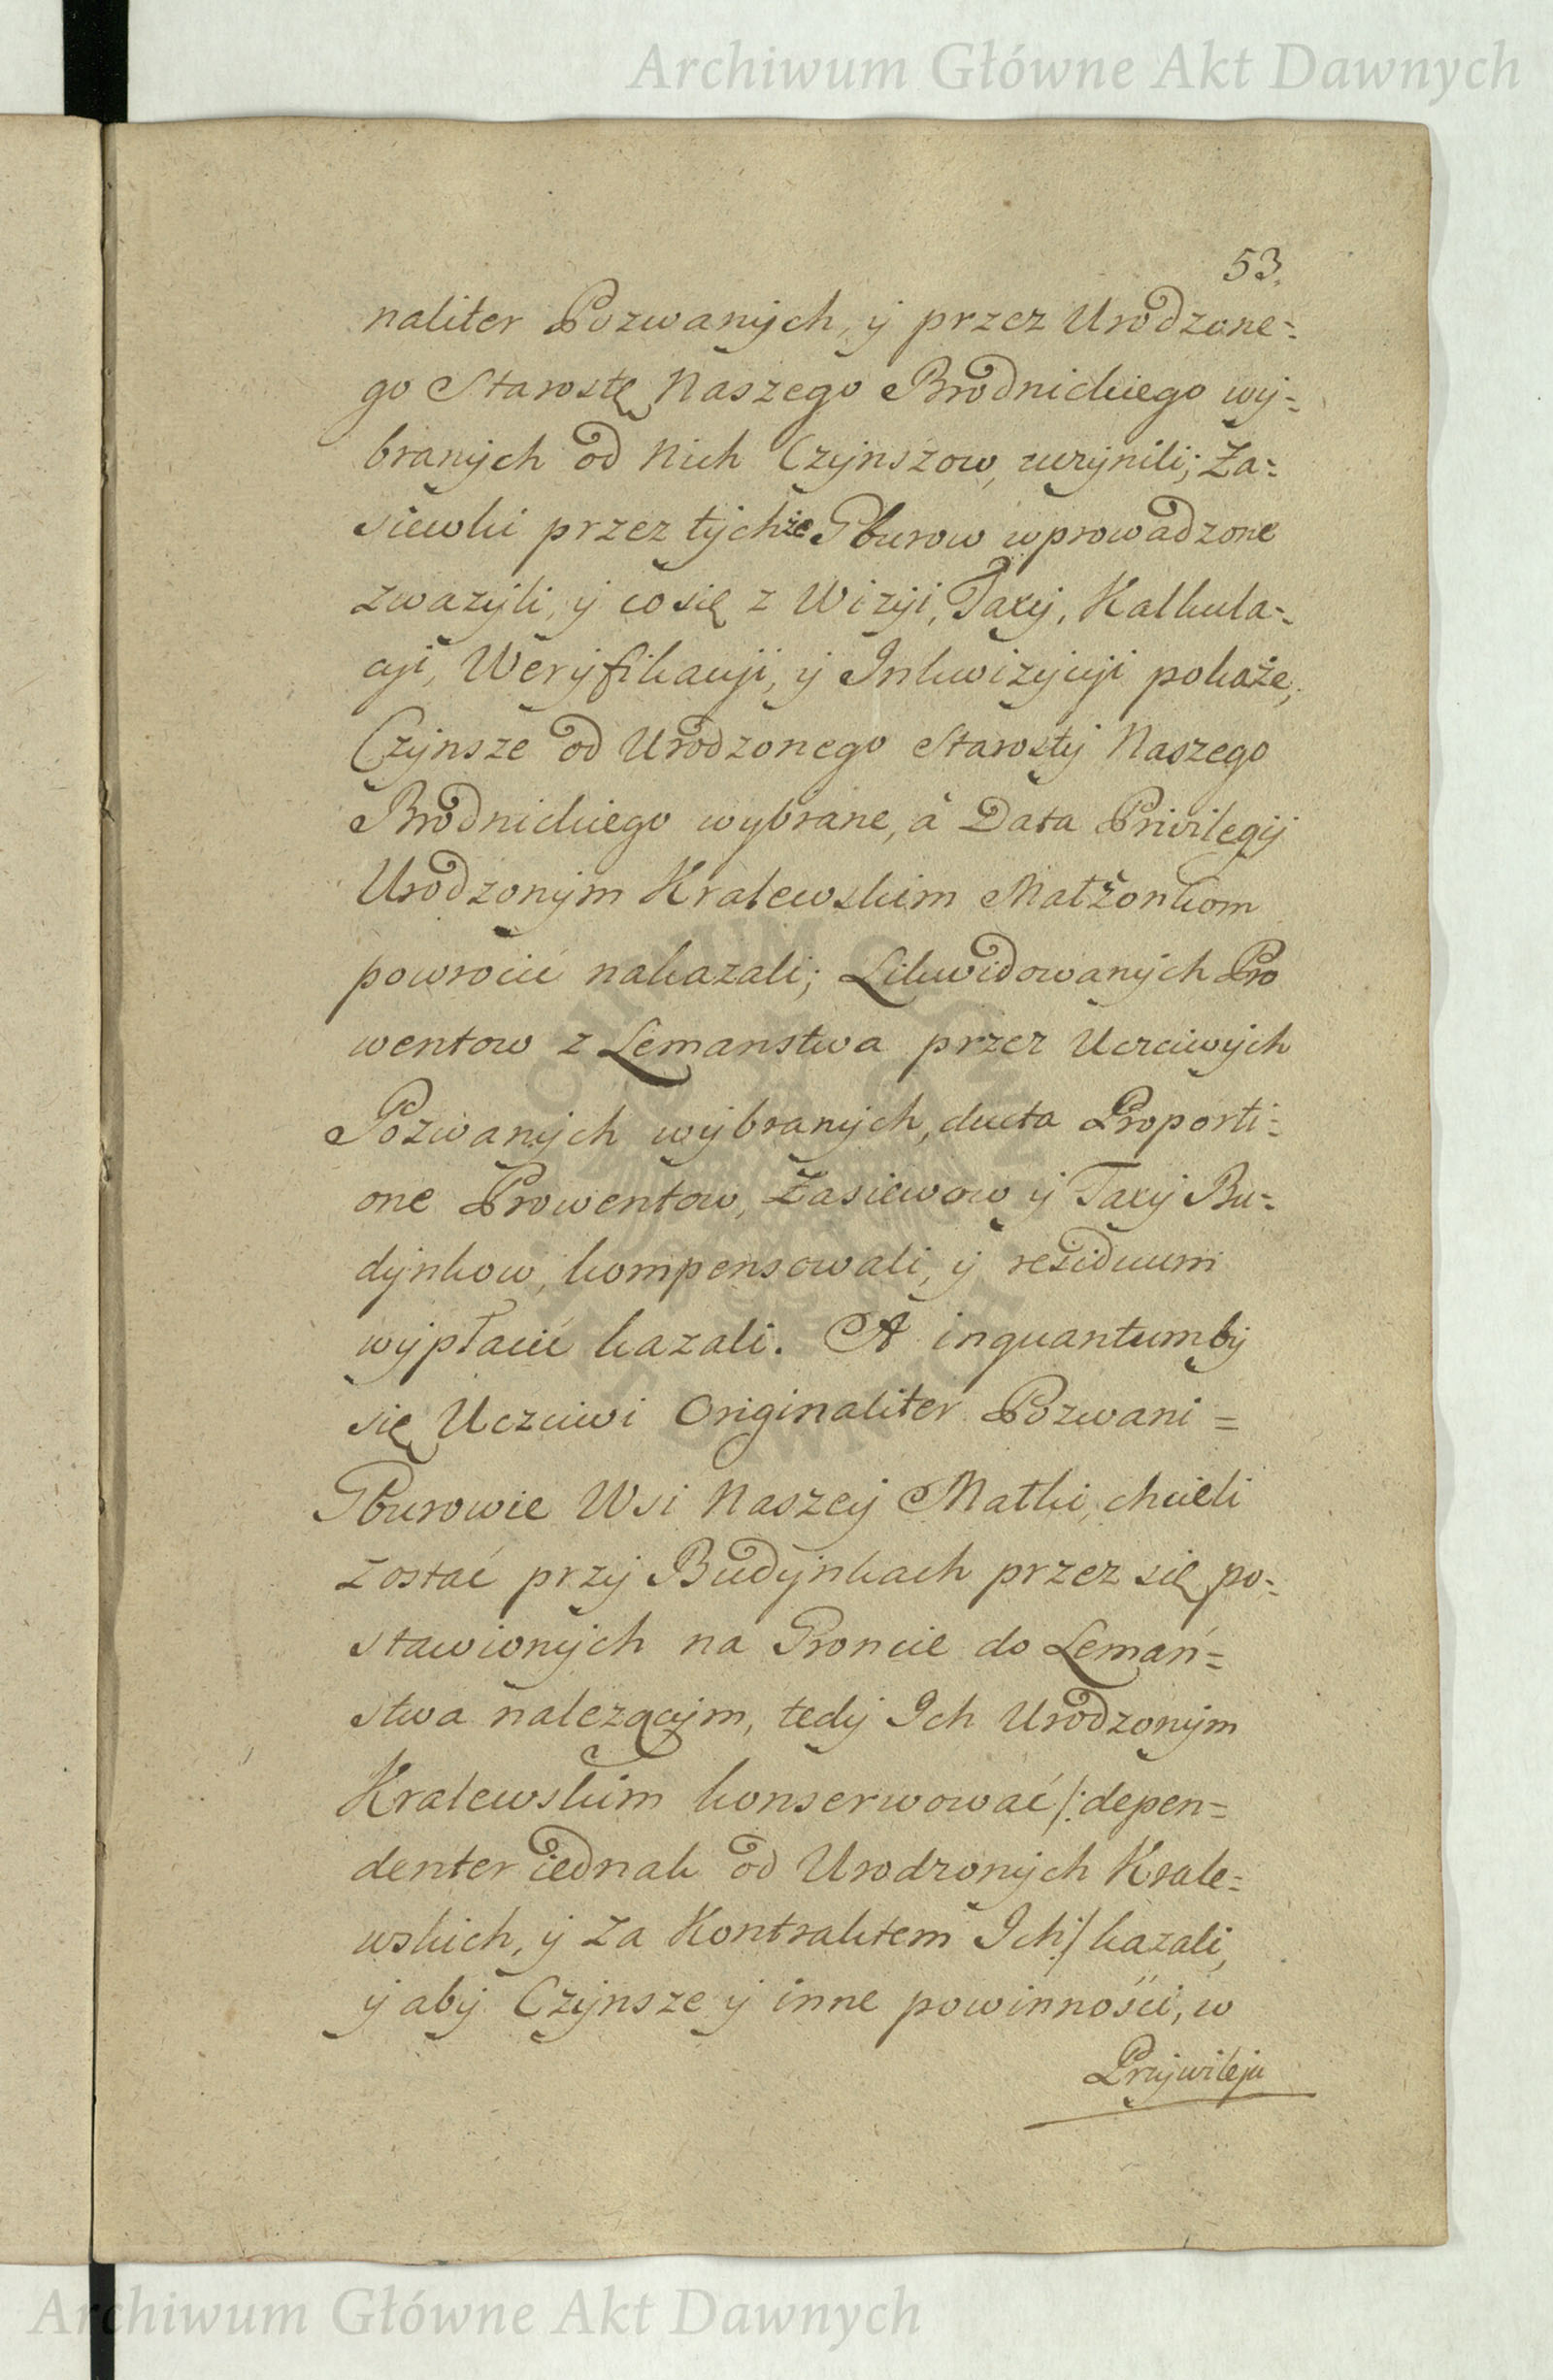 Archiwum Główne Akt Dawnych
53.
naliter Pozwanych, y przez Urodzone=
go Starostę Naszego Brodnickiego wy=
branych od Nich Czynszow, uczynili; Za=
siewki przez tychże Gburow wprowadzone
zwazyli, y co się z Wizyi, Taxy, Kalkula=
cyi, Weryfikacyi, y Inkwizycyi pokaże,
Czynsze od Urodzonego Starosty Naszego
Brodnickiego wybrane, à Data Privilegij
Urodzonym Kralewskim Małżonkom
powrocić nakazali; Likwidowanych Pro
wentow z Lemanstwa przez Uczciwych
Pozwanych wybranych, ducta Proporti=
one Prowentow, Zasiewow y Taxy Bu=
dynkow, kompensowali, y residuum
wypłacić kazali. A inquantumby
się Uczciwi Originaliter Pozwani =
Gburowie Wsi Naszey Matki, chcieli
zostać przy Budynkach przez się po=
stawionych na Groncie do Lemań=
stwa nalezącym, tedy Ich Urodzonym
Kralewskim konserwować /: depen=
denter iednak od Urodzonych Krale=
wskich, y za Kontraktem Ich :/ kazali,
y aby Czynsze y inne powinności, w
Przywileju
Archiwum Główne Akt Dawnych